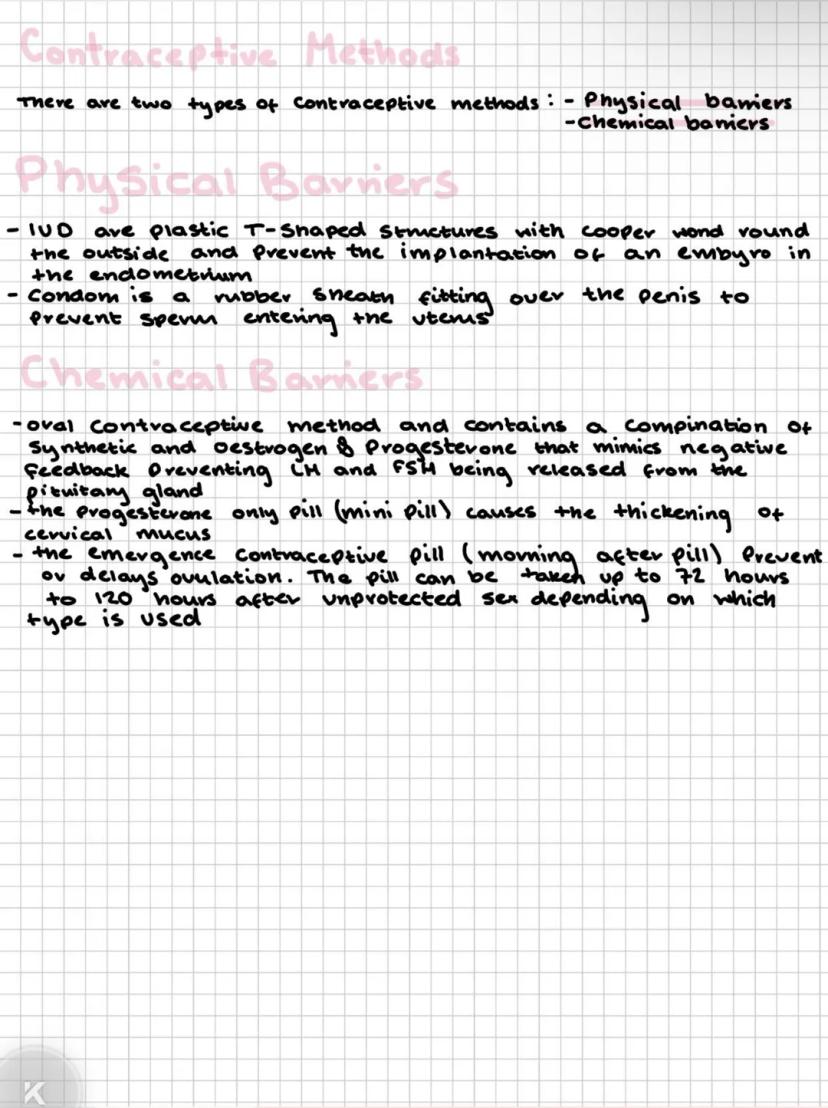 Contraceptive Methods
There are two types of contraceptive methods: - Physical barriers
- Chemical barriers
Physical Barriers
- IUD are plastic T-shaped structures with cooper wond round
the outside and prevent the implantation of an embyro in
the endometrium
- Condom is a rubber sheath fitting over the penis to
prevent sperm entering the uterus
Chemical Barriers
- oral contraceptive method and contains a compination of
synthetic and oestrogen & progesterone that mimics negative
feedback preventing LH and FSH being released from the
pituitary gland
- the progesterone only pill (mini pill) causes the thickening of
cervical mucus
- the emergence contraceptive pill (morning after pill) prevent
or delays ovulation. The pill can be taken up to 72 hours
to 120 hours after unprotected sex depending on which
type is used
K